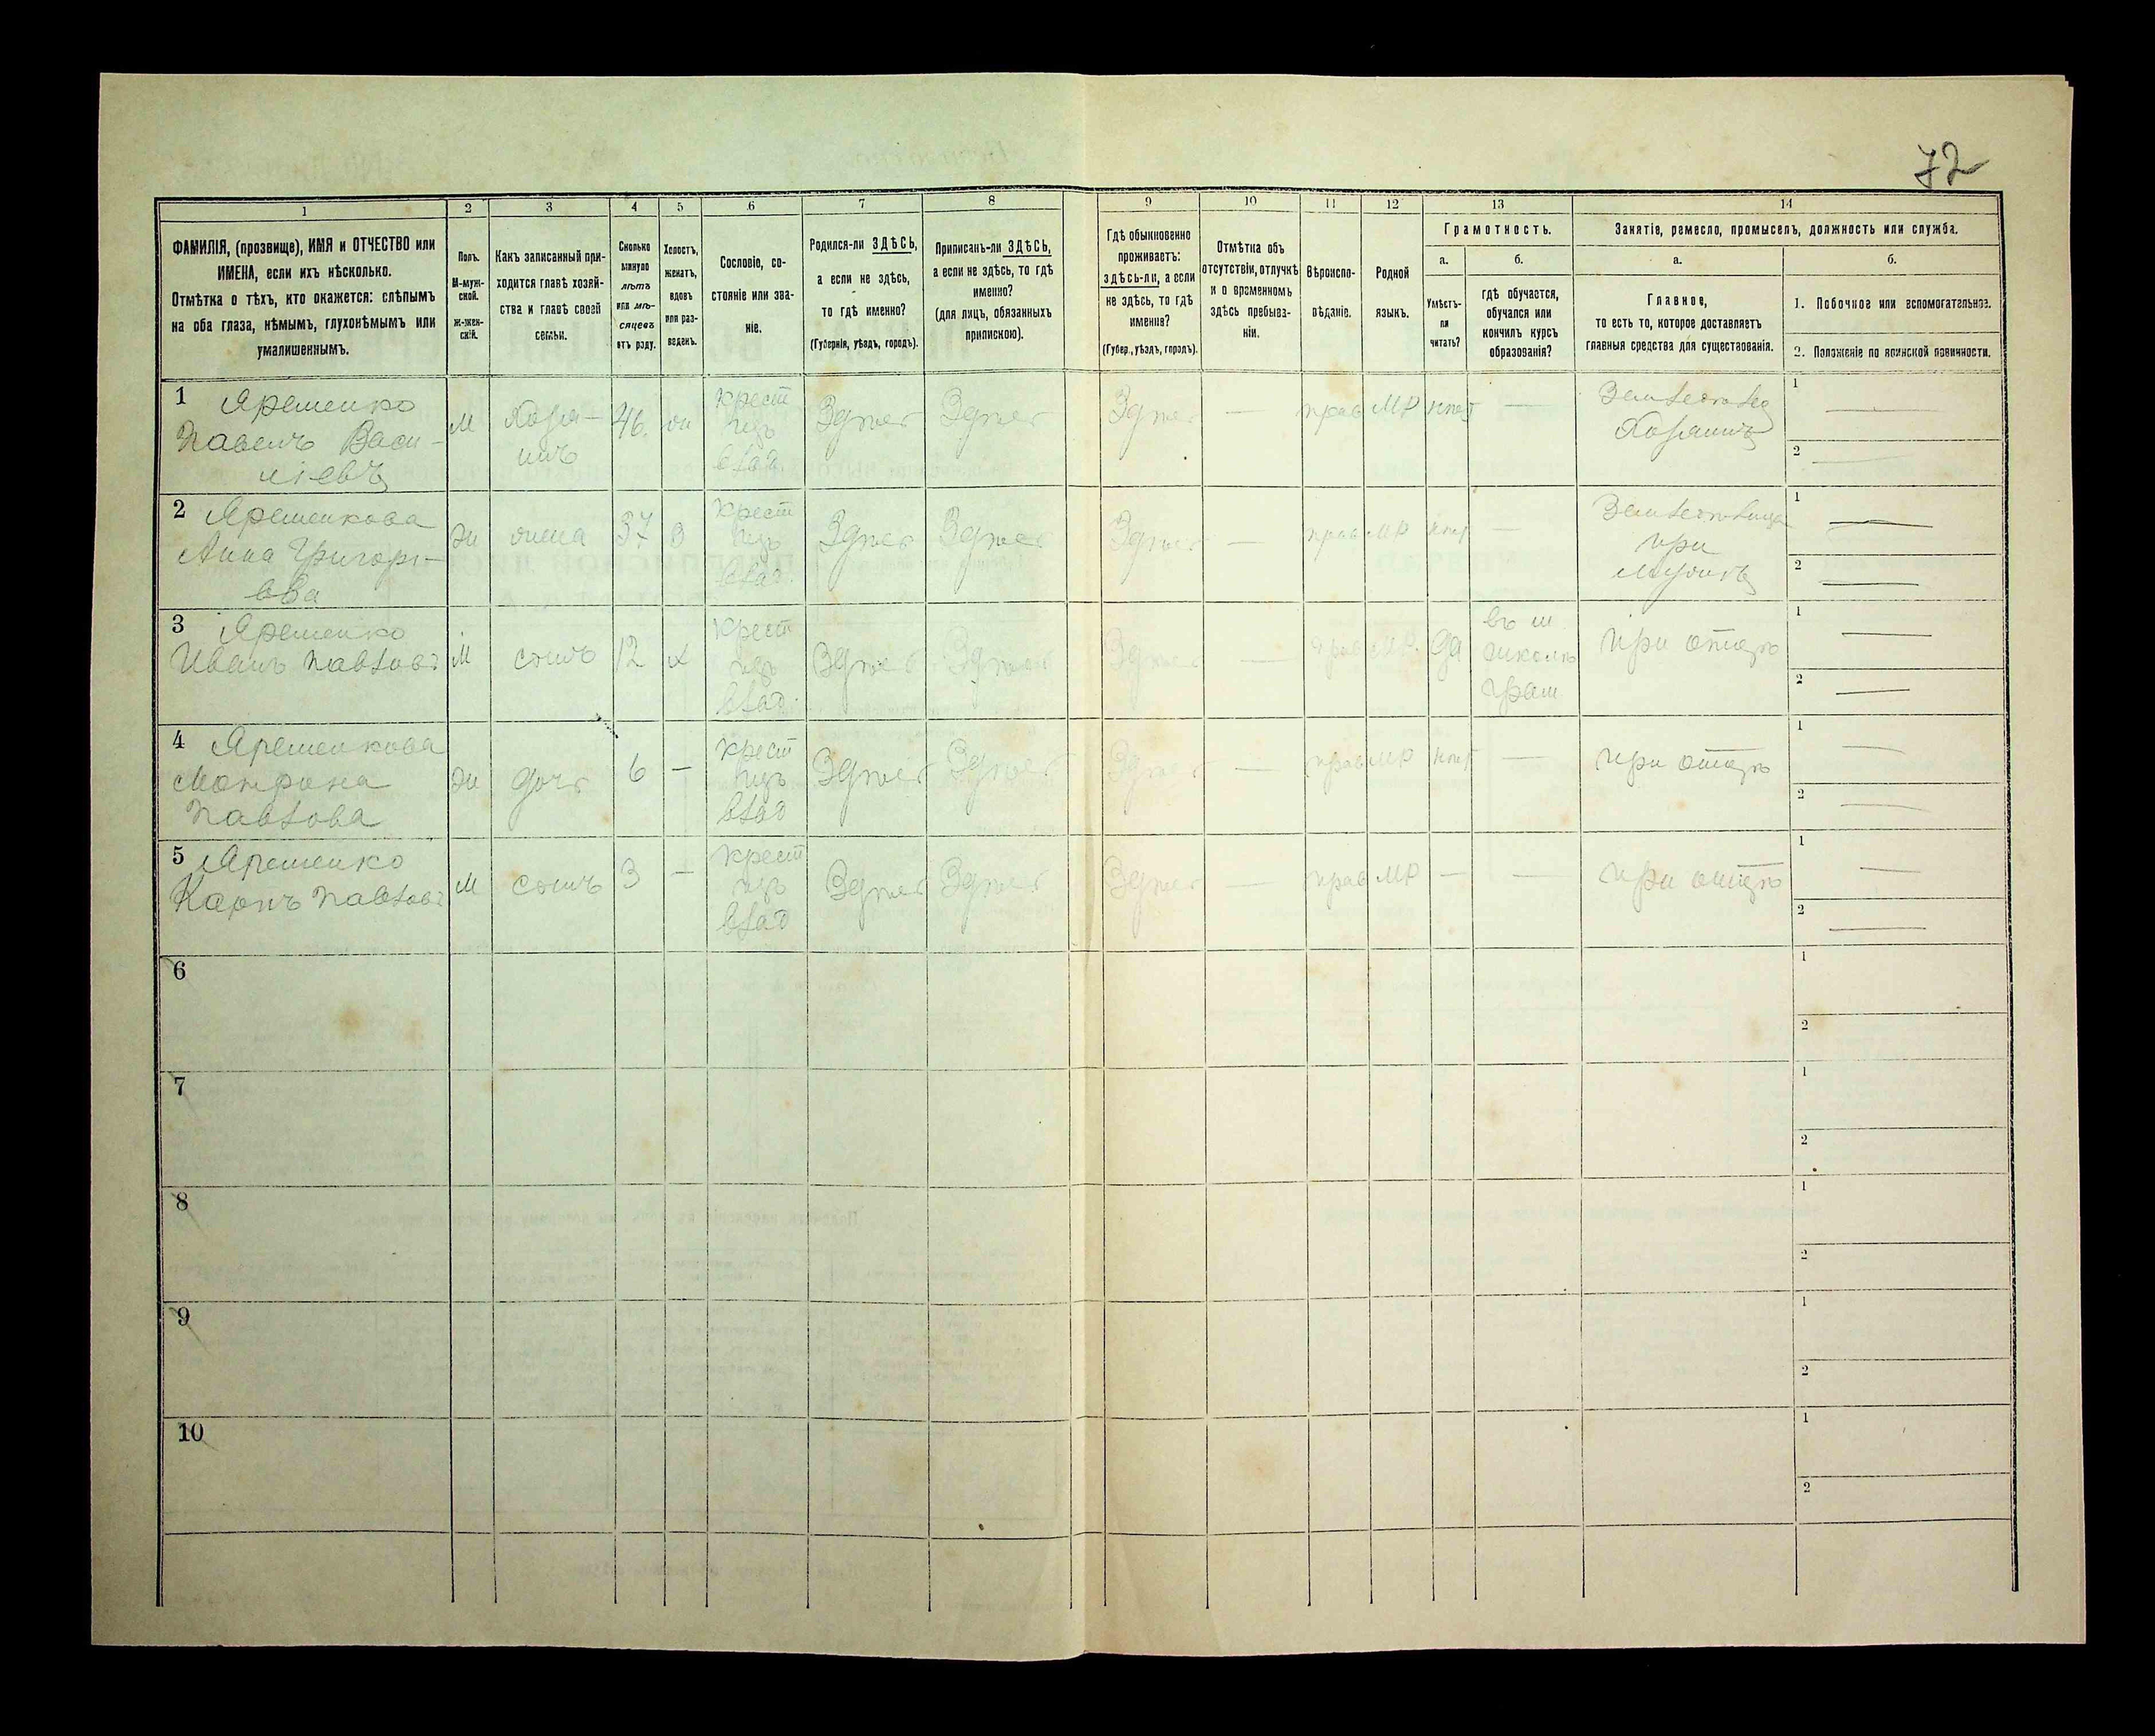 72
1
2
3
4
5
6
7
8
9
10
11
12
13
14
ФАМИЛІЯ, (прозвище), ИМЯ и ОТЧЕСТВО или
ИМЕНА, если ихъ нѣсколько.
Отмѣтка о тѣхъ, кто окажется: слѣпымъ
на оба глаза, нѣмымъ, глухонѣмымъ или
умалишеннымъ.
Полъ.
М-муж-
ской.
ж-жен-
скій.
Какъ записанный при-
ходится главѣ хозяй-
ства и главѣ своей
семьи.
Сколько
минуло
лѣтъ
или мѣ-
сяцевъ
отъ роду.
Холостъ,
женатъ,
вдовъ
или раз-
веденъ.
Сословіе, со-
стояніе или зва-
ніе.
Родился-ли ЗДѢСЬ,
а если не здѣсь,
то гдѣ именно?
(Губернія, уѣздъ, городъ).
Приписанъ-ли ЗДѢСЬ,
а если не здѣсь, то гдѣ
именно?
(для лицъ, обязанныхъ
припискою).
Гдѣ обыкновенно
проживаетъ:
здѣсь-ли, а если
не здѣсь, то гдѣ
именно?
(Губер., уѣздъ, городъ).
Отмѣтка объ
отсутствіи, отлучкѣ
и о временномъ
здѣсь пребыва-
ніи.
Вѣроиспо-
вѣданіе.
Родной
языкъ.
Грамотность.
а.
Умѣетъ-
ли
читать?
б.
гдѣ обучается,
обучался или
кончилъ курсъ
образованія?
Занятіе, ремесло, промыселъ, должность или служба.
а.
Главное,
то есть то, которое доставляетъ
главныя средства для существованія.
б.
1. Побочное или вспомогательное.
2. Положеніе по воинской повинности.
1 Яременко
Павелъ Васи-
ліевъ
М
Хозя-
инъ
46.
жн
крест
изъ
влад.
Здѣсь
Здѣсь
Здѣсь
—
прав
МР
нѣт
—
Земледѣлец
Хозяинъ
1 —
2 —
2 Яременкова
Анна Григорі-
ева
жн
жена
37
З
крест
изъ
влад.
Здѣсь
Здѣсь
Здѣсь
—
прав
МР
нѣт
—
при
мужѣ
1 —
2 —
3 Яременко
Иванъ Павлов
М
сынъ
12
х
крест
изъ
влад.
Здѣсь
Здѣсь
Здѣсь
—
прав
МР.
да
въ
школѣ
грам
при отцѣ
1 —
2 —
4 Яременкова
Павлова
жн
дочь
6
—
крест
изъ
влад
Здѣсь
Здѣсь
Здѣсь
—
прав
МР
нѣт
—
при отцѣ
1 —
2 —
5 Яременко
Карпъ Павлов
М
сынъ
3
—
крест
изъ
влад
Здѣсь
Здѣсь
Здѣсь
—
прав
МР
—
—
при отцѣ
1 —
2 —
6
1
2
7
1
2
8
1
2
9
1
2
10
1
2